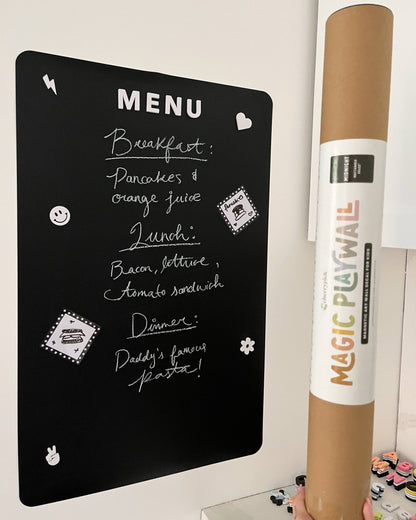 MENU
Breakfast:
Pancakes &
orange juice
Lunch:
Bacon, lettuce,
tomato sandwich
Dinner:
Daddy's famous
pasta!
MIDNIGHT
MAGIC PLAYWALL
MAGNETIC ART WALL DECAL FOR KIDS